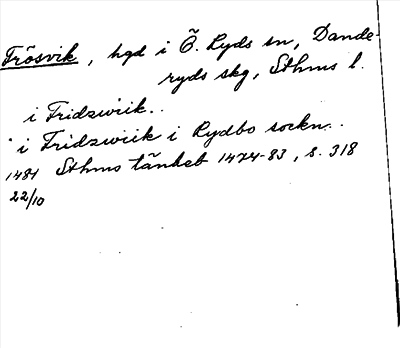 Frösvik, hgd i Ö. Ryds sn, Dande-
ryds skg, Sthms l.
i Fridzwiik..
i Fridzwiik i Rydbo sockn..
1481 Sthms tänkeb 1474-83, s. 318
22/10